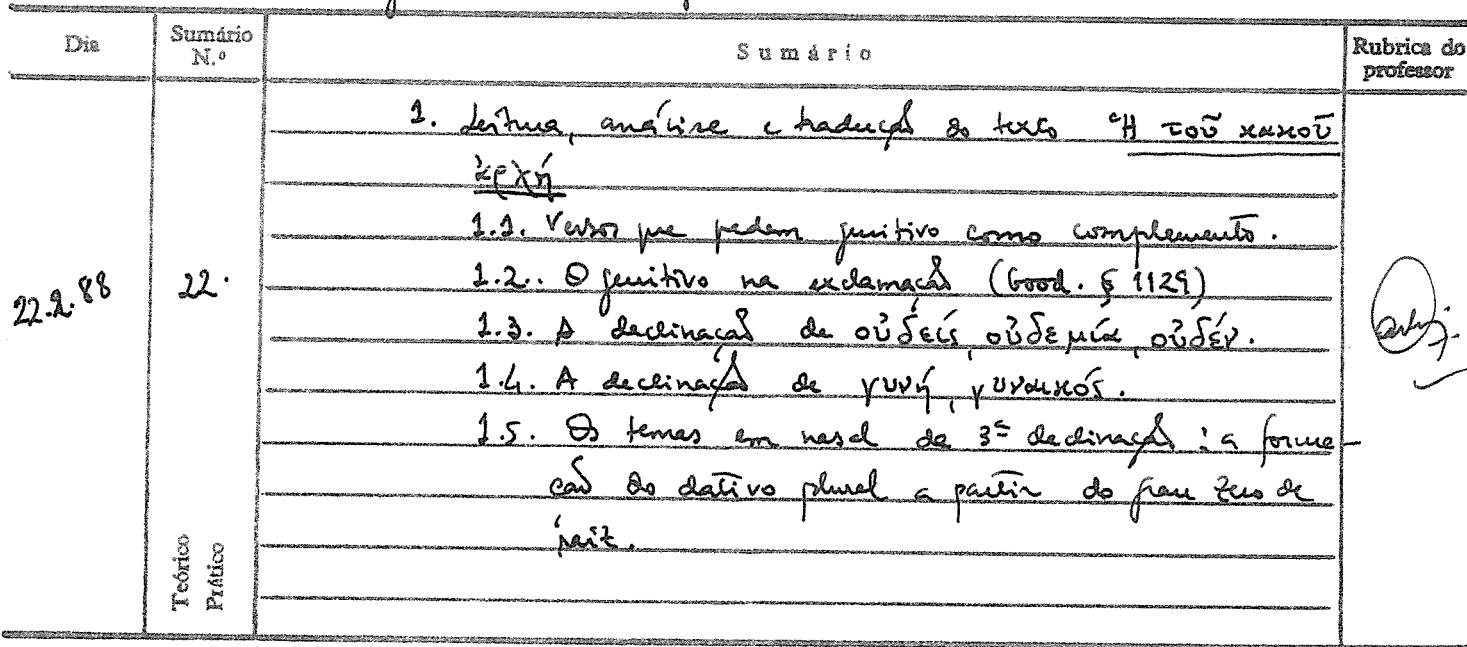 Dia
Sumário N.º
Sumário
Rubrica do professor
22.2.88
22.
1. Leitura, análise e tradução do texto Ἡ τοῦ κακοῦ
ἀρχή
1.1. Verbos que pedem genitivo como complemento.
1.2. O genitivo na exclamação (Good. § 1129)
1.3. A declinação de οὐδείς, οὐδεμία, οὐδέν.
1.4. A declinação de γυνή, γυναικός.
1.5. Os temas em nasal da 3ª declinação: a forma-
ção do dativo plural a partir do grau zero da
raiz.
Teórico
Prático